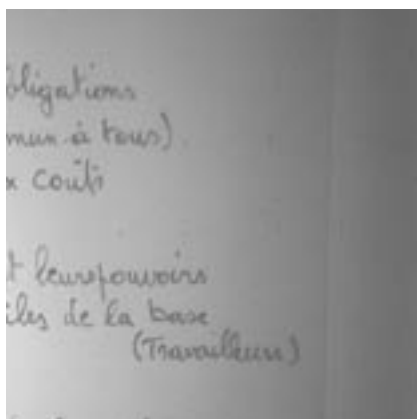 obligations
mun à tous)
x coûts
t leurs pouvoirs
iles de la base
(Travailleurs)